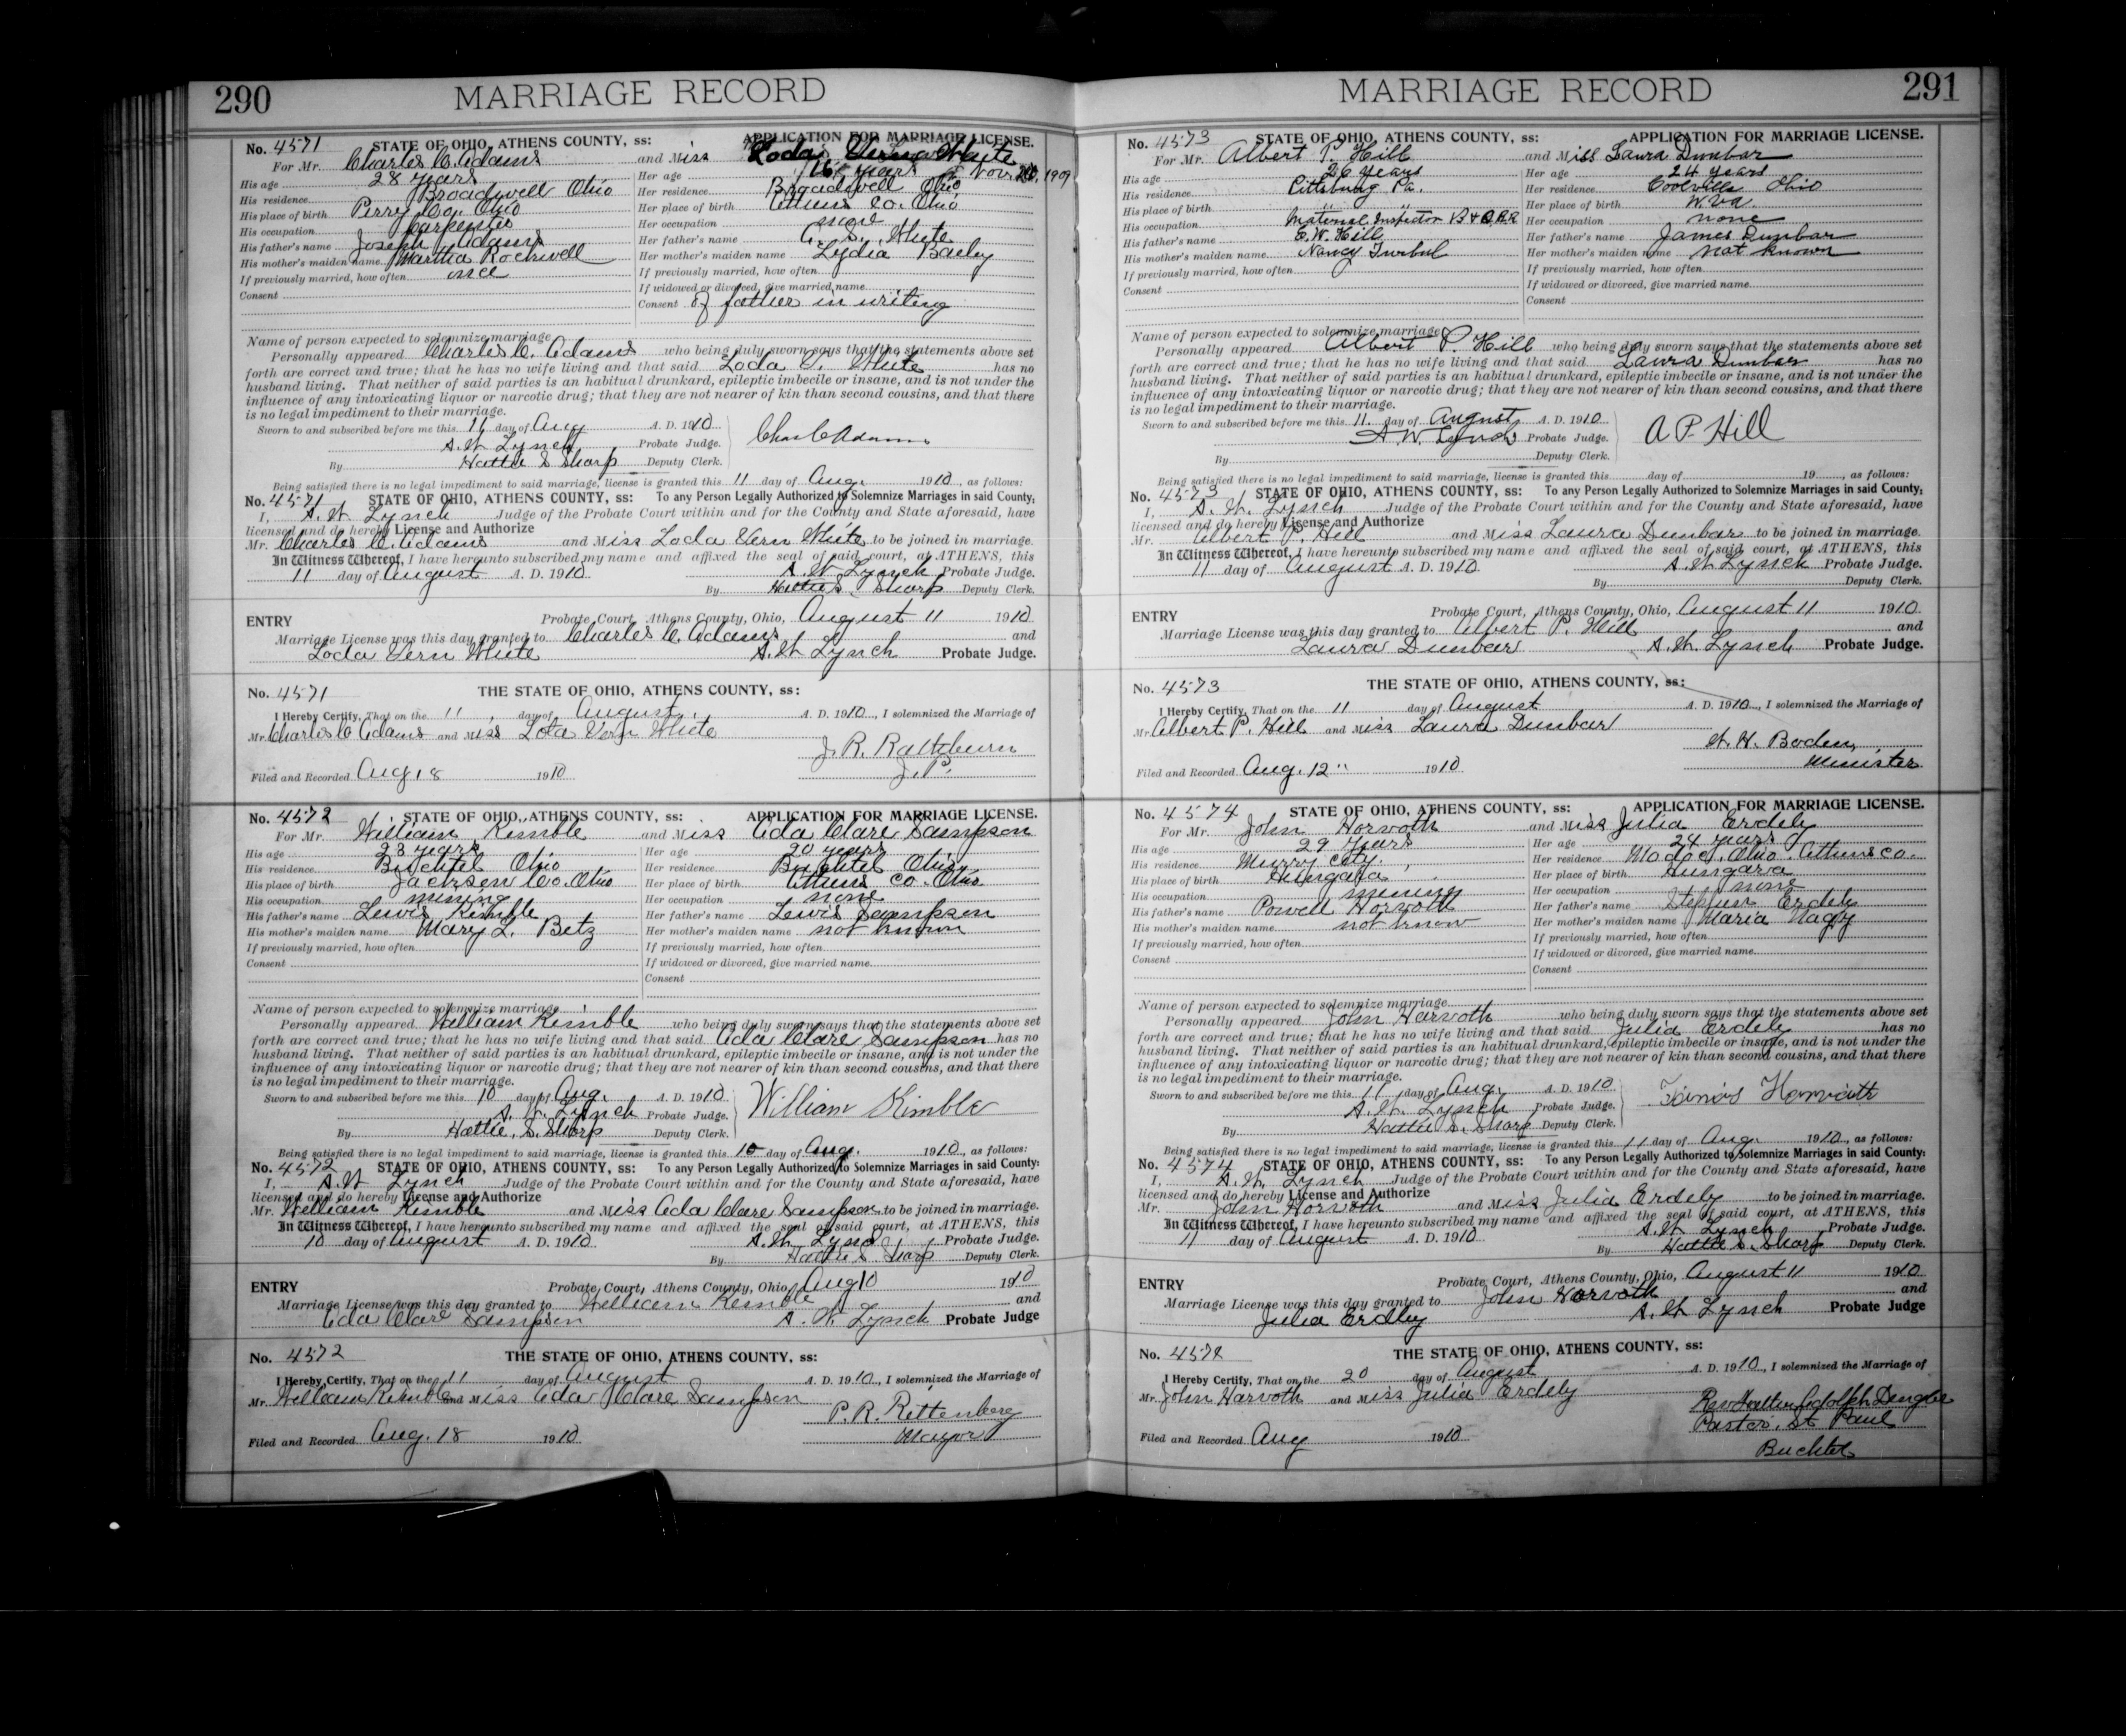 290 MARRIAGE RECORD
No. 4571 STATE OF OHIO, ATHENS COUNTY, ss: APPLICATION FOR MARRIAGE LICENSE.
For Mr. Charles C. Adams and Miss Loda Verna White
His age 28 years Her age 16 years Nov. 1909
His residence Broadwell Ohio Her residence Broadwell Ohio
His place of birth Perry Co. Ohio Her place of birth Athens Co. Ohio
His occupation Carpenter Her occupation none
His father's name Joseph Adams Her father's name White
His mother's maiden name Martha Rockwell Her mother's maiden name Lydia Bailey
If previously married, how often once If previously married, how often
Consent If widowed or divorced, give married name
Consent of father in writing
Name of person expected to solemnize marriage
Personally appeared Charles C. Adams who being duly sworn says that the statements above set
forth are correct and true; that he has no wife living and that said Loda V. White has no
husband living. That neither of said parties is an habitual drunkard, epileptic imbecile or insane, and is not under the
influence of any intoxicating liquor or narcotic drug; that they are not nearer of kin than second cousins, and that there
is no legal impediment to their marriage.
Sworn to and subscribed before me this 11 day of Aug A. D. 1910
A. W. Lynch Probate Judge. Chas C Adams
By Hattie S Sharp Deputy Clerk.
Being satisfied there is no legal impediment to said marriage, license is granted this 11 day of Aug. 1910, as follows:
No. 4571 STATE OF OHIO, ATHENS COUNTY, ss: To any Person Legally Authorized to Solemnize Marriages in said County;
I, A. W. Lynch Judge of the Probate Court within and for the County and State aforesaid, have
licensed and do hereby License and Authorize
Mr. Charles C. Adams and Miss Loda Vern White to be joined in marriage.
In Witness Whereof, I have hereunto subscribed my name and affixed the seal of said court, at ATHENS, this
11 day of August A. D. 1910 A. W. Lynch Probate Judge.
By Hattie S. Sharp Deputy Clerk.
ENTRY Probate Court, Athens County, Ohio, August 11 1910
Marriage License was this day granted to Charles C. Adams and
Loda Vern White A. W. Lynch Probate Judge.
No. 4571 THE STATE OF OHIO, ATHENS COUNTY, ss:
I Hereby Certify, That on the 11 day of August A. D. 1910, I solemnized the Marriage of
Mr. Charles C Adams and Miss Lota Vern White
J. R. Rathburn
J. P.
Filed and Recorded Aug. 18 1910
No. 4572 STATE OF OHIO, ATHENS COUNTY, ss: APPLICATION FOR MARRIAGE LICENSE.
For Mr. William Kimble and Miss Ada Clare Sampson
His age 23 years Her age 20 years
His residence Buchtel Ohio Her residence Buchtel Ohio
His place of birth Jackson Co. Ohio Her place of birth Athens Co. Ohio
His occupation mining Her occupation none
His father's name Lewis Kimble Her father's name Lewis Sampson
His mother's maiden name Mary L. Betz Her mother's maiden name not known
If previously married, how often If previously married, how often
Consent If widowed or divorced, give married name
Consent
Name of person expected to solemnize marriage
Personally appeared William Kimble who being duly sworn says that the statements above set
forth are correct and true; that he has no wife living and that said Ada Clare Sampson has no
husband living. That neither of said parties is an habitual drunkard, epileptic imbecile or insane, and is not under the
influence of any intoxicating liquor or narcotic drug; that they are not nearer of kin than second cousins, and that there
is no legal impediment to their marriage.
Sworn to and subscribed before me this 10 day of Aug. A. D. 1910
A. W. Lynch Probate Judge. William Kimble
By Hattie. S. Sharp Deputy Clerk.
Being satisfied there is no legal impediment to said marriage, license is granted this 10 day of Aug. 1910, as follows:
No. 4572 STATE OF OHIO, ATHENS COUNTY, ss: To any Person Legally Authorized to Solemnize Marriages in said County:
I, A. W. Lynch Judge of the Probate Court within and for the County and State aforesaid, have
licensed and do hereby License and Authorize
Mr. William Kimble and Miss Ada Clare Sampson to be joined in marriage.
In Witness Whereof, I have hereunto subscribed my name and affixed the seal of said court, at ATHENS, this
10 day of August A. D. 1910 A. W. Lynch Probate Judge.
By Hattie S. Sharp Deputy Clerk.
ENTRY Probate Court, Athens County, Ohio, Aug 10 1910
Marriage License was this day granted to William Kimble and
Ada Clare Sampson A. W. Lynch Probate Judge
No. 4572 THE STATE OF OHIO, ATHENS COUNTY, ss:
I Hereby Certify, That on the 11 day of August A. D. 1910, I solemnized the Marriage of
Mr. William Kimble and Miss Ada Clare Sampson
P. R. Rittenberg
Mayor
Filed and Recorded Aug. 18 1910
MARRIAGE RECORD 291
No. 4573 STATE OF OHIO, ATHENS COUNTY, ss: APPLICATION FOR MARRIAGE LICENSE.
For Mr. Albert P. Hill and Miss Laura Dunbar
His age 26 years Her age 24 years
His residence Pittsburg Pa. Her residence Coolville Ohio
His place of birth " " Her place of birth W. Va.
His occupation Material Inspector B & O. R.R Her occupation none
His father's name E. W. Hill Her father's name James Dunbar
His mother's maiden name Nancy Her mother's maiden name not known
If previously married, how often If previously married, how often
Consent If widowed or divorced, give married name
Consent
Name of person expected to solemnize marriage
Personally appeared Albert P. Hill who being duly sworn says that the statements above set
forth are correct and true; that he has no wife living and that said Laura Dunbar has no
husband living. That neither of said parties is an habitual drunkard, epileptic imbecile or insane, and is not under the
influence of any intoxicating liquor or narcotic drug; that they are not nearer of kin than second cousins, and that there
is no legal impediment to their marriage.
Sworn to and subscribed before me this 11. day of August A. D. 1910
A. W. Lynch Probate Judge. A P. Hill
By Deputy Clerk.
Being satisfied there is no legal impediment to said marriage, license is granted this day of 19 , as follows:
No. 4573 STATE OF OHIO, ATHENS COUNTY, ss: To any Person Legally Authorized to Solemnize Marriages in said County;
I, A. W. Lynch Judge of the Probate Court within and for the County and State aforesaid, have
licensed and do hereby License and Authorize
Mr. Albert P. Hill and Miss Laura Dunbar to be joined in marriage.
In Witness Whereof, I have hereunto subscribed my name and affixed the seal of said court, at ATHENS, this
11 day of August A. D. 1910 A. W. Lynch Probate Judge.
By Deputy Clerk.
ENTRY Probate Court, Athens County, Ohio, August 11 1910
Marriage License was this day granted to Albert P. Hill and
Laura Dunbar A. W. Lynch Probate Judge.
No. 4573 THE STATE OF OHIO, ATHENS COUNTY, ss:
I Hereby Certify, That on the 11 day of August A. D. 1910, I solemnized the Marriage of
Mr. Albert P. Hill and Miss Laura Dunbar
W. H. Boden,
Minister
Filed and Recorded Aug. 12" 1910
No. 4574 STATE OF OHIO, ATHENS COUNTY, ss: APPLICATION FOR MARRIAGE LICENSE.
For Mr. John Horvoth and Miss Julia Erdely
His age 29 years Her age 24 years
His residence Murry City. Her residence Modoc, Ohio. Athens Co.
His place of birth Hungara Her place of birth Hungara
His occupation mining Her occupation none
His father's name Powell Horvoth Her father's name Erdely
His mother's maiden name not know Her mother's maiden name Maria Nagy
If previously married, how often If previously married, how often
Consent If widowed or divorced, give married name
Consent
Name of person expected to solemnize marriage
Personally appeared John Harvoth who being duly sworn says that the statements above set
forth are correct and true; that he has no wife living and that said Julia Erdely has no
husband living. That neither of said parties is an habitual drunkard, epileptic imbecile or insane, and is not under the
influence of any intoxicating liquor or narcotic drug; that they are not nearer of kin than second cousins, and that there
is no legal impediment to their marriage.
Sworn to and subscribed before me this 11 day of Aug. A. D. 1910
A. W. Lynch Probate Judge.
By Hattie S. Sharp Deputy Clerk.
Being satisfied there is no legal impediment to said marriage, license is granted this 11 day of Aug. 1910, as follows:
No. 4574 STATE OF OHIO, ATHENS COUNTY, ss: To any Person Legally Authorized to Solemnize Marriages in said County:
I, A. W. Lynch Judge of the Probate Court within and for the County and State aforesaid, have
licensed and do hereby License and Authorize
Mr. John Horvoth and Miss Julia Erdely to be joined in marriage.
In Witness Whereof, I have hereunto subscribed my name and affixed the seal of said court, at ATHENS, this
11 day of August A. D. 1910 A. W. Lynch Probate Judge.
By Hattie S. Sharp Deputy Clerk.
ENTRY Probate Court, Athens County, Ohio, August 11 1910
Marriage License was this day granted to John Horvoth and
Julia Erdley A. W. Lynch Probate Judge
No. 4574 THE STATE OF OHIO, ATHENS COUNTY, ss:
I Hereby Certify, That on the 20 day of August A. D. 1910, I solemnized the Marriage of
Mr. John Harvoth and Miss Julia Erdely
Rev Walter Adolph Dengler
Pastor, St Paul
Buchtel
Filed and Recorded Aug 1910